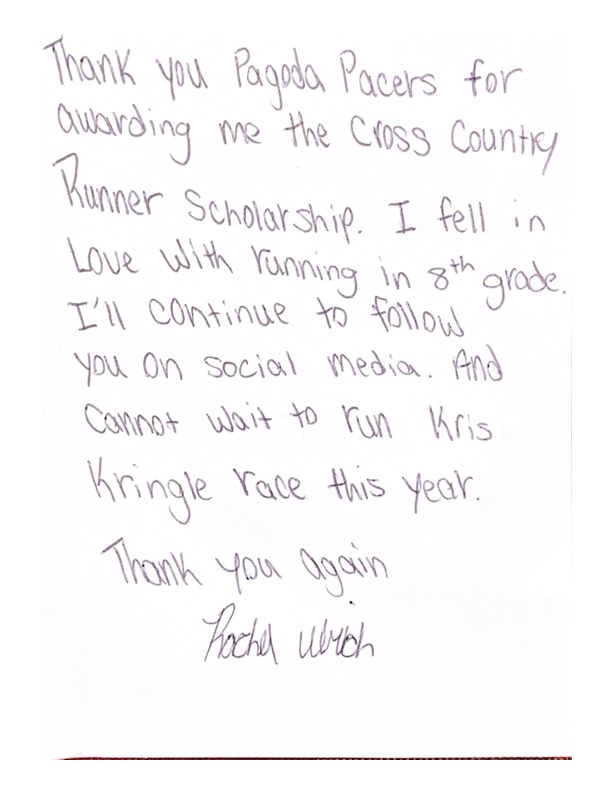 Thank you Pagoda Pacers for
awarding me the Cross Country
Runner Scholarship. I fell in
Love with running in 8th grade.
I'll continue to follow
you on social media. And
Cannot wait to run Kris
Kringle race this year.
Thank you again
Rachel Ulrich